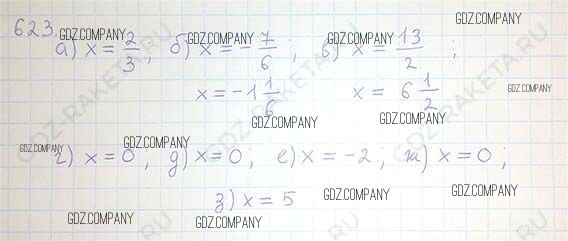 623.
а) x = 2/3; б) x = - 7/6; в) x = 13/2;
x = -1 1/6 x = 6 1/2
г) x = 0, д) x = 0; е) x = -2; ж) x = 0;
з) x = 5
GDZ.COMPANY
GDZ.COMPANY
GDZ.COMPANY
GDZ.COMPANY
GDZ.COMPANY
GDZ.COMPANY
GDZ.COMPANY
GDZ.COMPANY
GDZ.COMPANY
GDZ.COMPANY
GDZ.COMPANY
GDZ.COMPANY
GDZ.COMPANY
GDZ.COMPANY
GDZ-RAKETA.RU
GDZ-RAKETA.RU
GDZ-RAKETA.RU